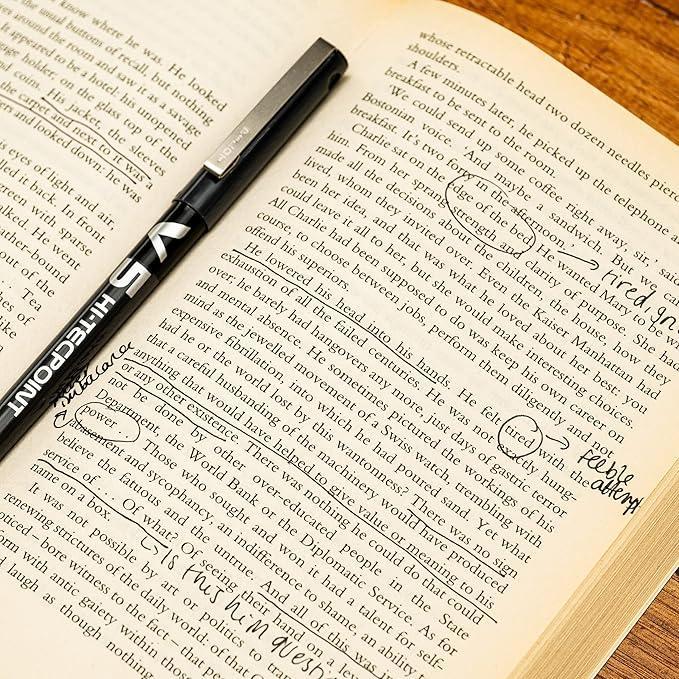 know where he was. He looked
the usual buttons of recall, but nothing
around the room and saw it as a savage
appeared to be a hotel: his unopened
holder, on the glass top of the
and coin. His jacket, the sleeves
the carpet and next to it was a
and looked down: he was
eyes of light and air,
it back. In front
green with sparse
He went
out of the
. . . Tea
V5 HI-TECPOINT
PILOT
whose retractable head two dozen needles
shoulders.
A few minutes later, he picked up the telephone
breakfast to be sent to the room.
'We could send up some coffee right away, sir,'
Bostonian voice. 'And maybe a sandwich. But we
breakfast. It's two in the afternoon.'
Charlie sat on the edge of the bed. He wanted Mary to be
him. From her sprang strength and clarity of purpose. She had
made all the decisions about the children, the house, how they
lived, whom they invited over. Even the Kaiser Manhattan had
been her idea, and that was what he loved about her best: you
could leave it all to her, but she making interesting choices.
All Charlie had been supposed to do was keep his own career on
course, to choose between jobs, perform them diligently and not
offend his superiors.
He lowered his head into his hands. He felt tired with the
exhaustion of all the failed centuries. He was not exactly hung-
over: he barely had hangovers any more, just days of gastric terror
and mental absence. He sometimes pictured the workings of his
mind as the jewelled movement of a Swiss watch, trembling with
expensive fibrillation, into which he had poured sand. Yet what
had he or the world lost by this wantonness? There was no sign
that a careful husbanding of the machinery would have produced
anything that would have helped to give value or meaning to his
or any other existence. There was nothing he could do that could
not be done by other over-educated people in the State
Department, the World Bank or the Diplomatic Service. As for
power. . . Those who sought and won it had a talent for self-
abasement and sycophancy, an indifference to shame, an ability
believe the fatuous and the untrue. And all of this was in
service of . . . Of what? Of seeing their hand on a
name on a box.
It was not possible by art or politics to
renewing strictures of the daily world: of that
– bore witness to the fact – that
with antic gaiety within those
laugh as though nothing
tired
feeble
Is this him